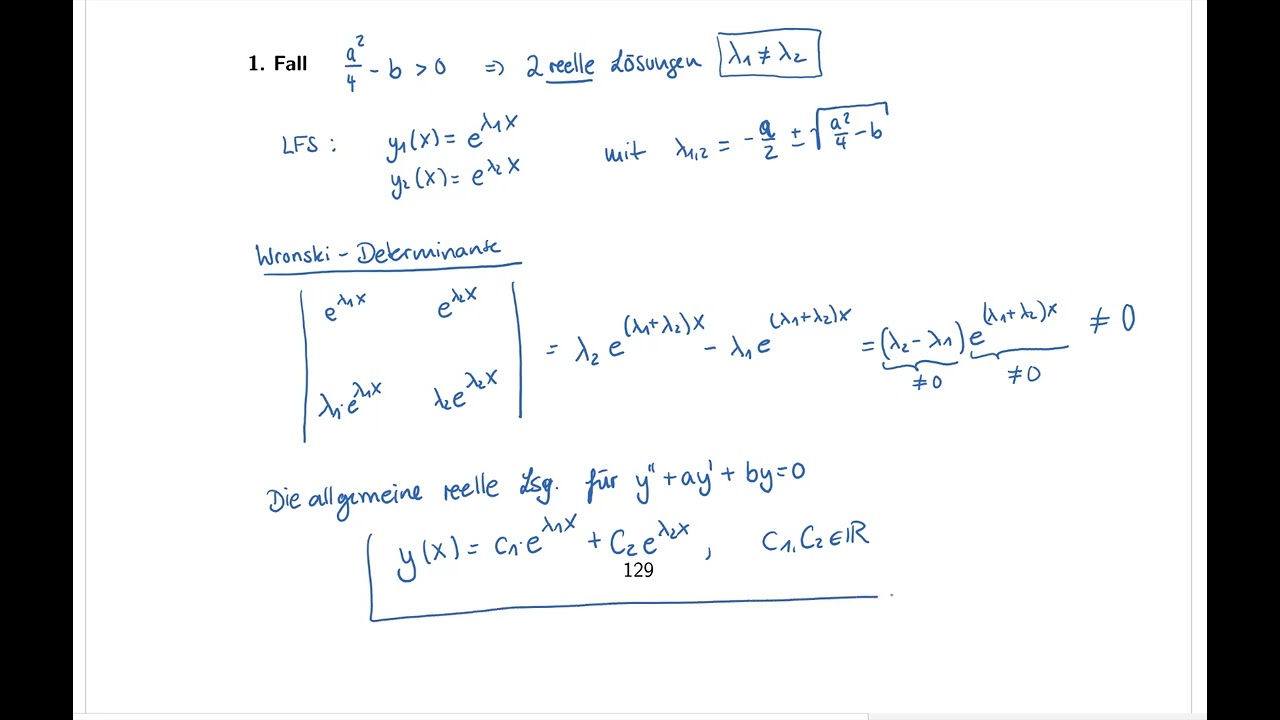 1. Fall a²/4 - b > 0 ⇒ 2 reelle Lösungen λ₁ ≠ λ₂
LFS : y₁(x) = e^{λ₁x} mit λ₁,₂ = -a/2 ± √(a²/4 - b)
y₂(x) = e^{λ₂x}
Wronski - Determinante
| e^{λ₁x} e^{λ₂x} |
| λ₁·e^{λ₁x} λ₂e^{λ₂x} | = λ₂ e^{(λ₁+λ₂)x} - λ₁e^{(λ₁+λ₂)x} = (λ₂ - λ₁) e^{(λ₁+λ₂)x} ≠ 0
≠0 ≠0
Die allgemeine reelle Lsg. für y'' + ay' + by = 0
y(x) = C₁·e^{λ₁x} + C₂e^{λ₂x} , C₁, C₂ ∈ ℝ
129